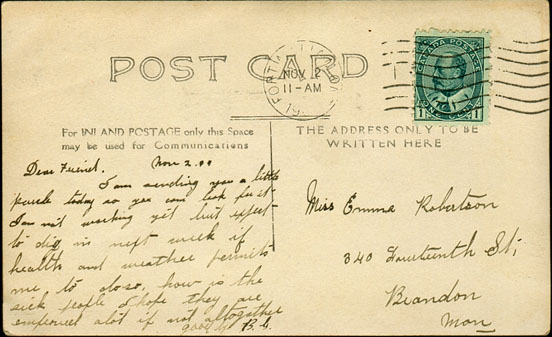 POST CARD
FORT WILLIAM
NOV 2
11-AM
CANADA POSTAGE
1 ONE CENT 1
For INLAND POSTAGE only this Space
may be used for Communications
THE ADDRESS ONLY TO BE
WRITTEN HERE
Dear Friend. Nov 2.
I am sending you a little
parcle today so you can look for it
I am not working yet but expect
to dig in next week if
health and weather permits
me to do so, how is the
sick people I hope they are
improved alot if not altogether
good by B. C.
Miss Emma Robertson
340 Fourteenth St;
Brandon
Man